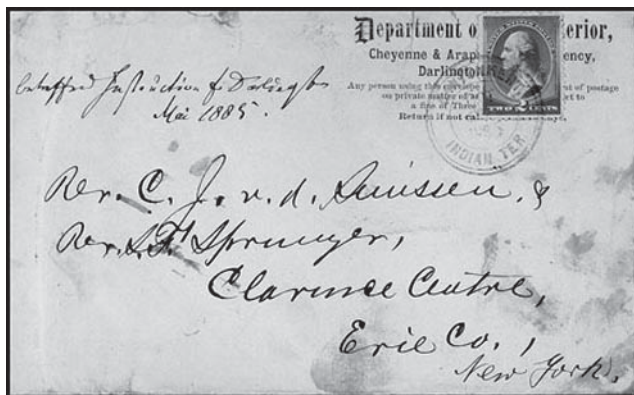 Department o erior,
Cheyenne & Arap ency,
Darlington
Any person using this envelope nt of postage
on private matter of a ct to
a fine of Three
Return if not cal ays.
TWO CENTS
INDIAN TER
betreffend Instruction f. Darlington
Mai 1885.
Rev. C. J. v. d. Smissen, &
Rev. S. F. Sprunger,
Clarence Centre,
Erie Co.,
New York.